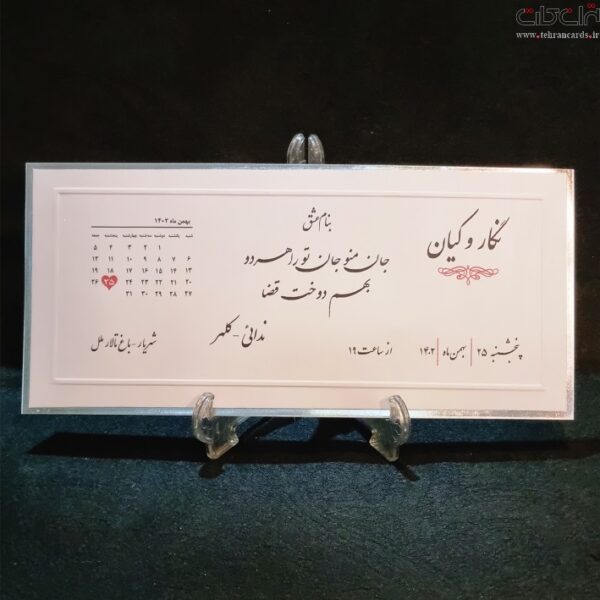 تهران کارت
www.tehrancards.ir
بنام عشق
نگار و کیان
جان من و جان تو را هر دو
بهم دوخت قضا
ندائی - کلهر
پنجشنبه ۲۵ | بهمن ماه | ۱۴۰۲
از ساعت ۱۹
شهریار - باغ تالار ملل
بهمن ماه ۱۴۰۲
شنبه یکشنبه دوشنبه سه‌شنبه چهارشنبه پنجشنبه جمعه
۱ ۲ ۳ ۴ ۵
۶ ۷ ۸ ۹ ۱۰ ۱۱ ۱۲
۱۳ ۱۴ ۱۵ ۱۶ ۱۷ ۱۸ ۱۹
۲۰ ۲۱ ۲۲ ۲۳ ۲۴ ۲۵ ۲۶
۲۷ ۲۸ ۲۹ ۳۰ ۳۱